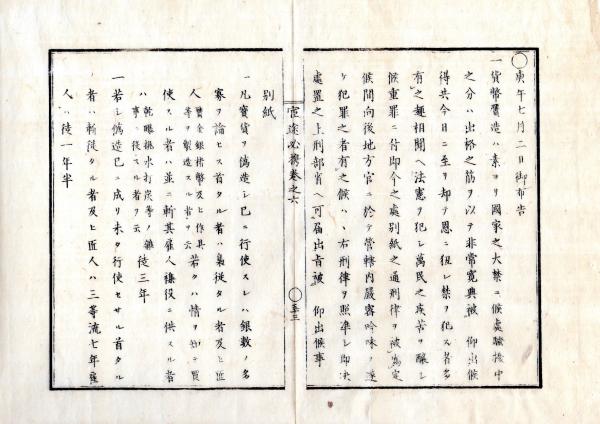 ○庚午七月二日御布告
一貨幣贋造ハ素ヨリ國家之大禁ニ候處騒擾中
之分ハ出格之筋ヲ以テ非常寛典被 仰出候
得共今日ニ至リ却テ恩ニ狃レ禁ヲ犯ス者多
有之趣相聞ヘ法憲ヲ犯シ萬民之疾苦ヲ醸シ
候重罪ニ付即今之處別紙之通刑律ヲ被為定
候間向後地方官ニ於テ管轄内嚴密吟味ヲ遂
ケ犯罪之者有之候ハヽ右刑律ヲ照準シ即決
處置之上刑部省ヘ可届出旨被 仰出候事
官途必携巻之六
○五十三
別紙
一凡寳貨ヲ偽造シ已ニ行使スレハ銀數ノ多
寡ヲ論セス首タル者ハ梟從タル者及ヒ匠
人 贋金銀楮幣及ヒ作具等ヲ製造スル者ヲ云 若クハ情ヲ知テ買
使スル者ハ並ニ斬其雇人雜役ニ供スル者
ハ 乾曝挑水打炭等ノ雜事ニ役スル者ヲ云 徒三年
一若シ偽造已ニ成リ未タ行使セサル首タル
者ハ斬從タル者及ヒ匠人ハ三等流七年雇
人ハ徒一年半